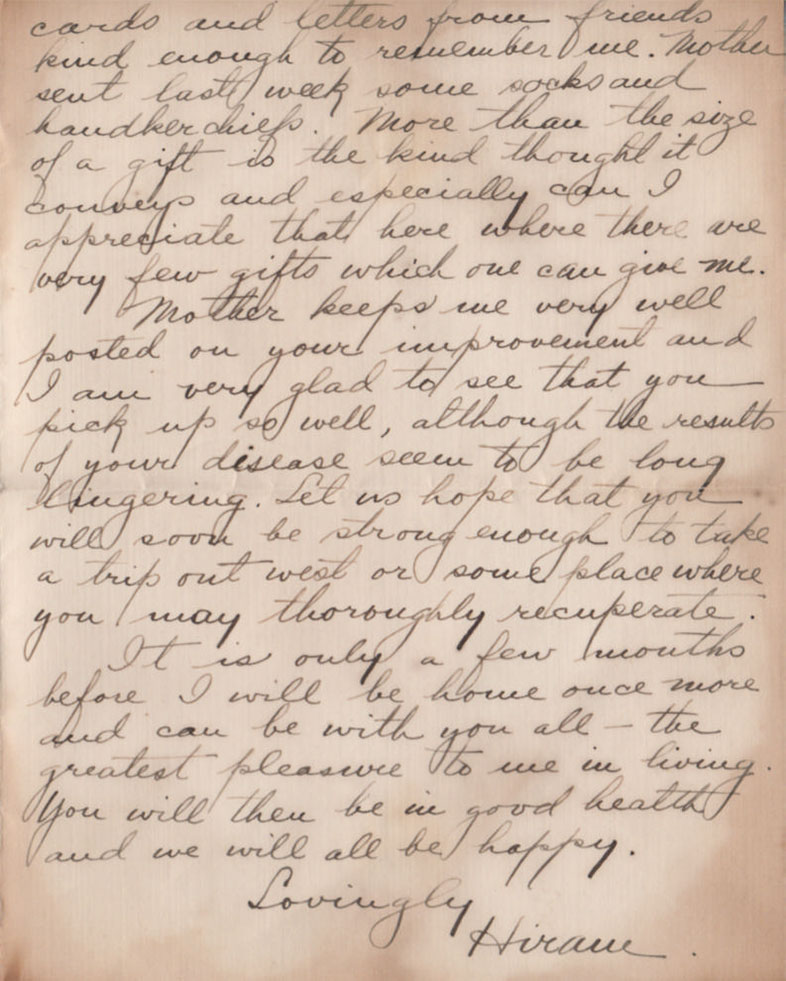 cards and letters from friends
kind enough to remember me. Mother
sent last week some socks and
handkerchiefs. More than the size
of a gift is the kind thought it
conveys and especially can I
appreciate that here where there are
very few gifts which one can give me.
Mother keeps me very well
posted on your improvement and
I am very glad to see that you
pick up so well, although the results
of your disease seem to be long
lingering. Let us hope that you
will soon be strong enough to take
a trip out west or some place where
you may thoroughly recuperate.
It is only a few months
before I will be home once more
and can be with you all – the
greatest pleasure to me in living.
You will then be in good health
and we will all be happy.
Lovingly
Hiram.